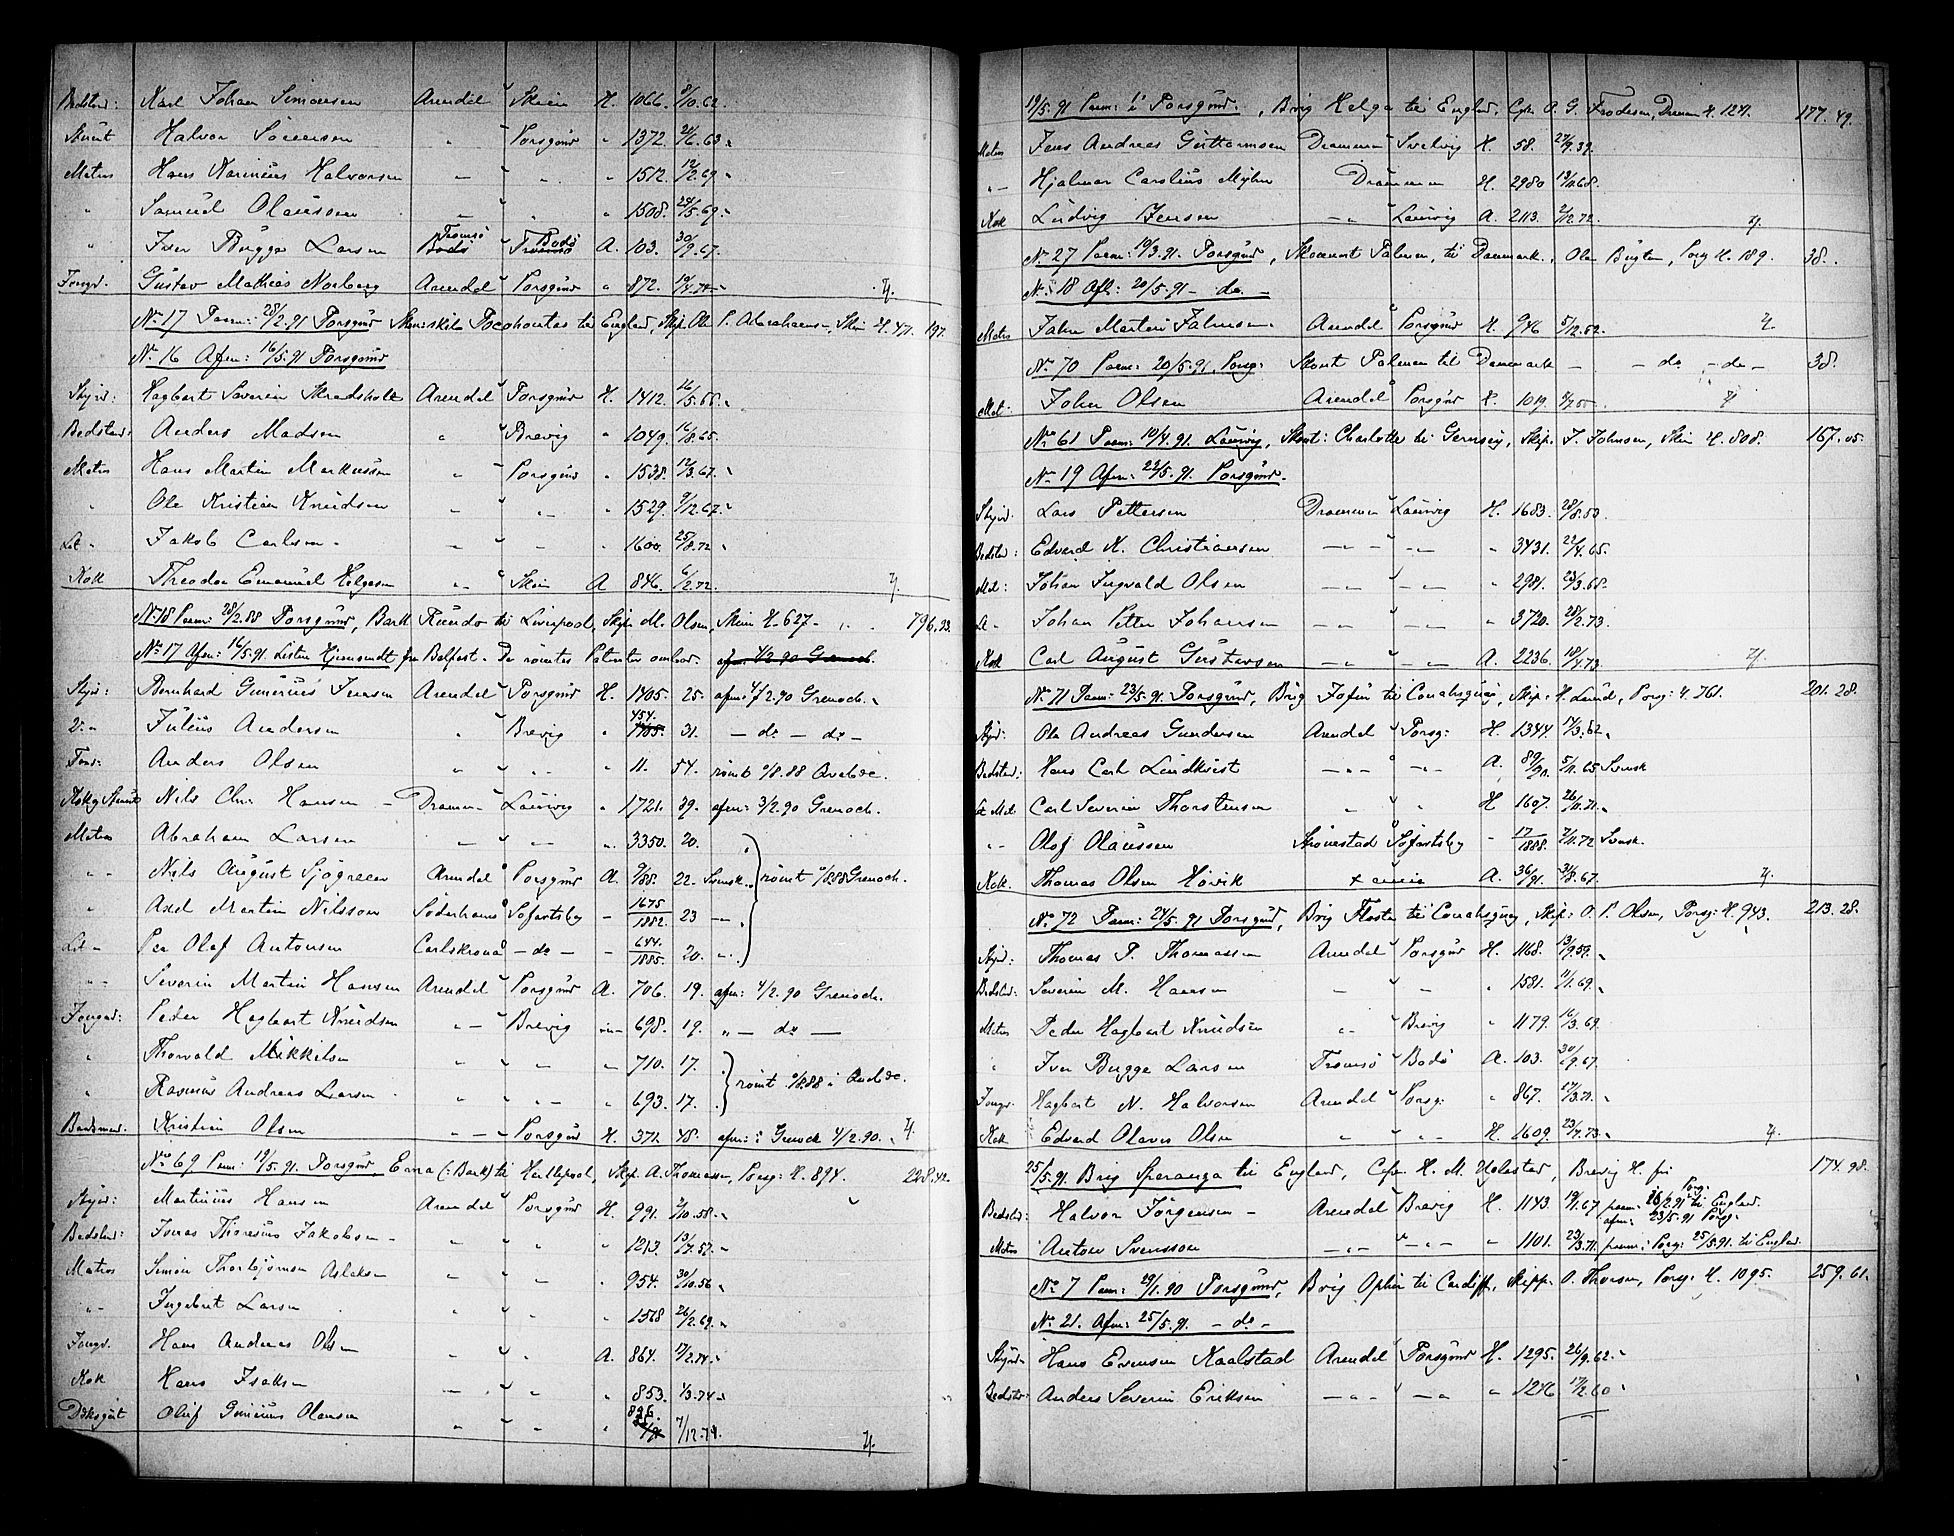 Bedstmd: Karl Johan Simonsen Arendal Skien H. 1066. 8/10.62.
Stuert Halvor Sørensen " Porsgrund " 1372 21/6.63.
Matros Hans Marinius Halvorsen — " " 1512. 12/2.69.
" Samuel Olaussen — " " 1508. 24/5.69.
" Iver Bugge Larsen Tromsø Bodø A. 103. 30/9.67.
Jungd. Gustav Mathias Norberg Arendal Porsgrund " 872. 7.
No 17 Paam: 28/2.91 Porsgrund Skonskib Pocahontas til England, Skip. Ole P. Abrahamsen, Skien H. 47. 197.
No 16 Afm: 16/5.91 Porsgrund
Styrd: Hagbart Severin Skradsholt Arendal Porsgrund H. 1412. 16/5.66.
Bedstmd: Anders Madsen " Brevig " 1049. 16/8.65.
Matros Hans Martin Markussen " Porsgrund " 1538. 12/3.67.
" Ole Kristian Knudsen " " " 1529. 9/12.67.
Let " Jakob Carlsen — " " 1600. 25/8.72
Kok Theodor Emanuel Helgesen " Skien A 846. 6/2.72. 7.
No 18 Paam: 28/2.88 Porsgrund, Bark Rundo til Liverpool, Skip. M. Olsen, Skien H. 627 796.93.
No 17 Afm: 16/5.91. Listen Hjemsendt fra Belfast. De rømtes Patenter ombord. afm: 4/2.90 Grenock.
Styrd: Bernhard Gunerius Jensen Arendal Porsgrund H. 1405. 25. afm: 4/2.90 Grenock.
2. " Julius Andersen " Brevig " 454. 31. — do — do —
Tømd: Anders Olsen " " " 11. 54. rømt 9/8.88 Quebec.
Kok og Stuert Nils Chr. Hansen Drammen Laurvig " 1721. 39. afm: 3/2.90 Grenock.
Matros Abraham Larsen — " — " 3350. 20.
" " Nils August Sjøgreen Arendal Porsgrund A. 9/88. 22. Svensk. rømt 9/8.88 Grenock.
" Axel Martin Nilsson Söderhamn Sjöfartsby — 1675/1882 23 — " —
Let " Per Olof Antonsen Carlskrona — do — — 644./1885. 20. " .
" " Severin Martin Hansen Arendal Porsgrund A. 706. 19. afm: 4/2.90 Grenock.
Jungmd: Peder Hagbart Knudsen " — Brevig — " — 698. 19. " — do —
" Thorvald Mikkelsen " " " 710. 17.
" Rasmus Andreas Larsen " " " 693. 17. rømt 9/8.88 i Quebec.
Baadsmand. Kristian Olsen — " — Porsgrund H. 371. 48. afm: i Grenock 4/2.90. 7.
No 69 Paam: 19/5.91. Porsgrund Erna (: Bark) til Hartlepool, Skip. A. Thomassen, Porsg: H. 894. 228.42.
Styrd: Martinius Hansen Arendal Porsgrund H. 991. 9/10.58.
Bedstmd: Jonas Thorenius Jakobsen " " " 1213. 13/7.57.
Matros Simon Thorbjørnsen Aslaksen " " " 954. 30/10.56
" Ingebrt Larsen " " 1568 26/2.69.
Jungd. Hans Andreas Olsen " " A. 864. 17/2.74.
Kok Hans Isaksen — " " " 853. 4/3.74
Dæksgut Oluf Gunerius Olausen " " " 896. 7/12.74. 7.
19/5.91 Paam: i Porsgrund, Brig Helga til England, Cpt. A. G. Frodesen, Drammen H. 1241. 177.49.
Matros Jens Andreas Guttormsen Drammen Svelvig H. 58. 27/9.39.
" — Hjalmar Carolius Myhre Drammen H. 2980 19/11.68.
Kok Ludvig Jensen — " Laurvig A. 2113. 2/12.72. 7.
No 27 Paam: 19/3.91. Porsgrund, Skonnert Palmen, til Danmark, Ole Bugten, Porsg H. 189. 38.
No 18 Afm: 20/5.91 — do. —
Matros John Martin Johnsen Arendal Porsgrund H. 946 5/12.52. 7.
No 70 Paam: 20/5.91. Porsg: Skont Palmen til Danmark — — do — do — 38.
Mat: John Olsen Arendal Porsgrund H. 1019. 9/7.55 7
No 61 Paam: 10/4.91. Laurvig, Skont: Charlotte til Gernsey, Skip. J. Johnsen, Skien H. 808. 167.05.
No 19 Afm: 22/5.91. Porsgrund.
Styrd. Lars Pettersen Drammen Laurvig H. 1683. 20/8.50.
Bedstmd: Edvard K. Christiansen — " — — " — " 3431. 22/4.65.
Mat: Johan Ingvald Olsen — " — — " — " 2981. 23/3.68.
Let " Johan Petter Johansen — " — — " — " 3720. 28/2.73.
Kok Carl August Gustavsen — " — — " — A. 2236. 18/4.73 7.
No 71 Paam: 23/5.91. Porsgrund, Brig Jofur til Conahsquay, Skip: H. Lund, Porsg: H. 761. 201.28.
Styrd: Ole Andreas Gundersen Arendal Porsg: H. 1344 14/3.62.
Bedstmd: Hans Carl Lindkvist — " — — " — A. 89/90. 5/11.65 Svensk
Let Mat Carl Severin Thorstensen " " H 1607. 26/11.71.
" — Olof Olaussen Strömstad Sjöfartsby — 17/1888. 7/11.72 Svensk.
Kok. Thomas Olsen Høvik A. 36/91. 24/8.67. 7.
No 72 Paam: 24/5.91. Porsgrund, Brig Flora til Conahsquay, Skip: O. P. Olsen, Porsg: H. 943. 213.28.
Styrd: Thomas P. Thomassen Arendal Porsgrund H. 1168. 13/9.59.
Bedstmd: Severin M. Hansen — " — " 1581. 11/1.69.
Matros Peder Hagbart Knudsen " " Brevig " 1179. 16/3.69.
" Iver Bugge Larsen Tromsø Bodø A. 103. 30/9.67.
Jungd. Hagbart N. Halvorsen Arendal Porsg: " 867. 17/3.71.
Kok Edvard Olaves Olsen " " " H. 1609. 23/7.73. 7.
25/5.91 Brig Speranza til England, Cpt. H. M. Ugletad, Brevig H. fri 174.98.
Bedstmd: Halvor Jørgensen — Arendal Brevig H. 1143. 19/1.67 paam: Porsg: 26/2.91 til England. afm: 23/5.91 Porsg.
Matros Anton Svensson — " — " — " 1101. 23/3.71. paam: i Porsg: 25/5.91. til England.
No 7 Paam: 29/1.90 Porsgrund, Brig Ophir til Cardiff, Skipp. O. Thorsen, Porsg: H. 1095. 259.61.
No 21. Afm: 25/5.91. — do —
Styrd. Hans Evensen Kaalstad Arendal Porsgrund H. 1295. 26/9.62.
Bedstmd: Anders Severin Eriksen — " — — " — " 1246 17/2.60